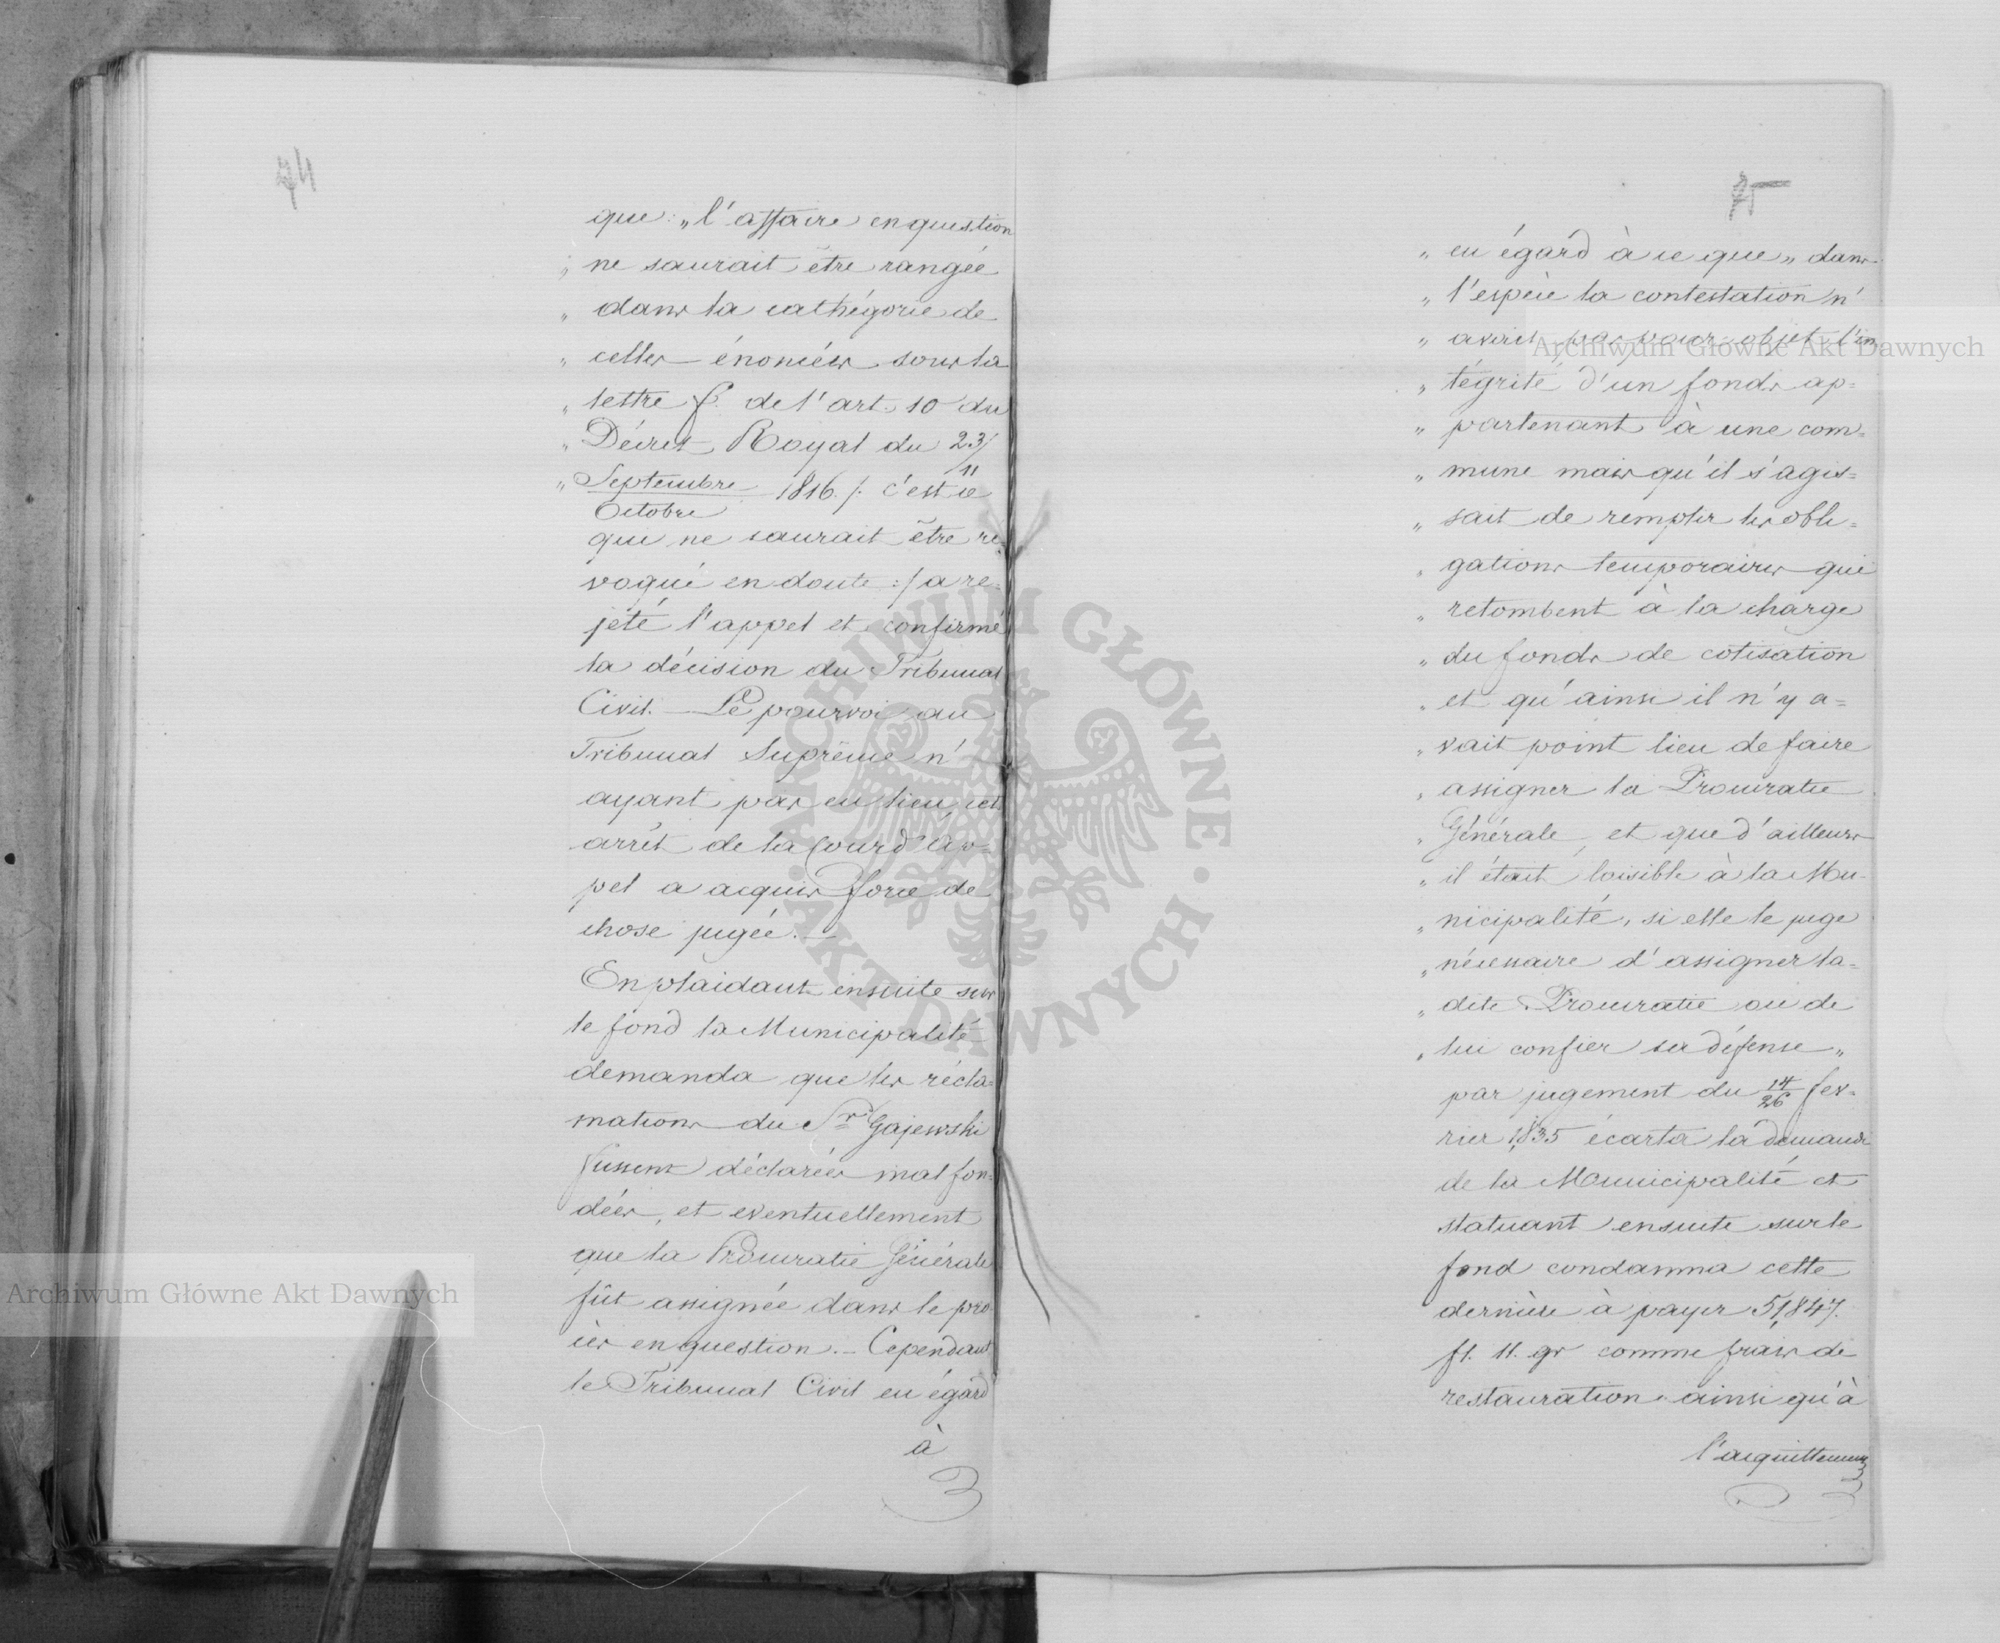 74
que: „l'affaire en question
„ ne saurait être rangée
„ dans la cathégorie de
„ celles énoncées sous la
„ lettre f. de l'art. 10 du
„ Décret Royal du 23/11
„ Septembre/Octobre 1816 /: c'est ce
que ne saurait être re-
voqué en doute :/ a re-
jeté l'appel et confirmé
la décision du Tribunal
Civil. — Le pourvoi au
Tribunal Suprême n'
ayant pas eu lieu, cet
arrêt de la Cour d'Ap-
pel a acquis force de
chose jugée. —
En plaidant ensuite sur
le fond la Municipalité
demanda que les récla-
mations du Sr Gajewski
fussent déclarées mal fon-
dées, et eventuellement
que la Procuratie Générale
fût assignée dans le pro-
cès en question. — Cependant
le Tribunal Civil eu égard
à
75
„ eu égard à ce que „ dans
„ l'espèce la contestation n'
„ avait pas pour objet l'in
„ tégrité d'un fonds ap=
„ partenant à une com=
„ mune mais qu'il s'agis=
„ sait de remplir les obli=
„ gations temporaires qui
„ retombent à la charge
„ du fonds de cotisation
„ et qu'ainsi il n'y a=
„ vait point lieu de faire
„ assigner la Procuratie
„ Générale, et que d'ailleurs
„ il était loisible à la Mu-
„ nicipalité, si elle le juge
„ nécessaire d'assigner la=
„ dite Procuratie ou de
„ lui confier sa défense „
par jugement du 14/26 fev=
rier 1835 écarta la demande
de la Municipalité et
statuant ensuite sur le
fond condamna cette
dernière à payer 51,847.
fl. 11. gr comme frais de
restauration ainsi qu'à
l'acquittement
Archiwum Główne Akt Dawnych
Archiwum Główne Akt Dawnych
ARCHIWUM GŁÓWNE AKT DAWNYCH